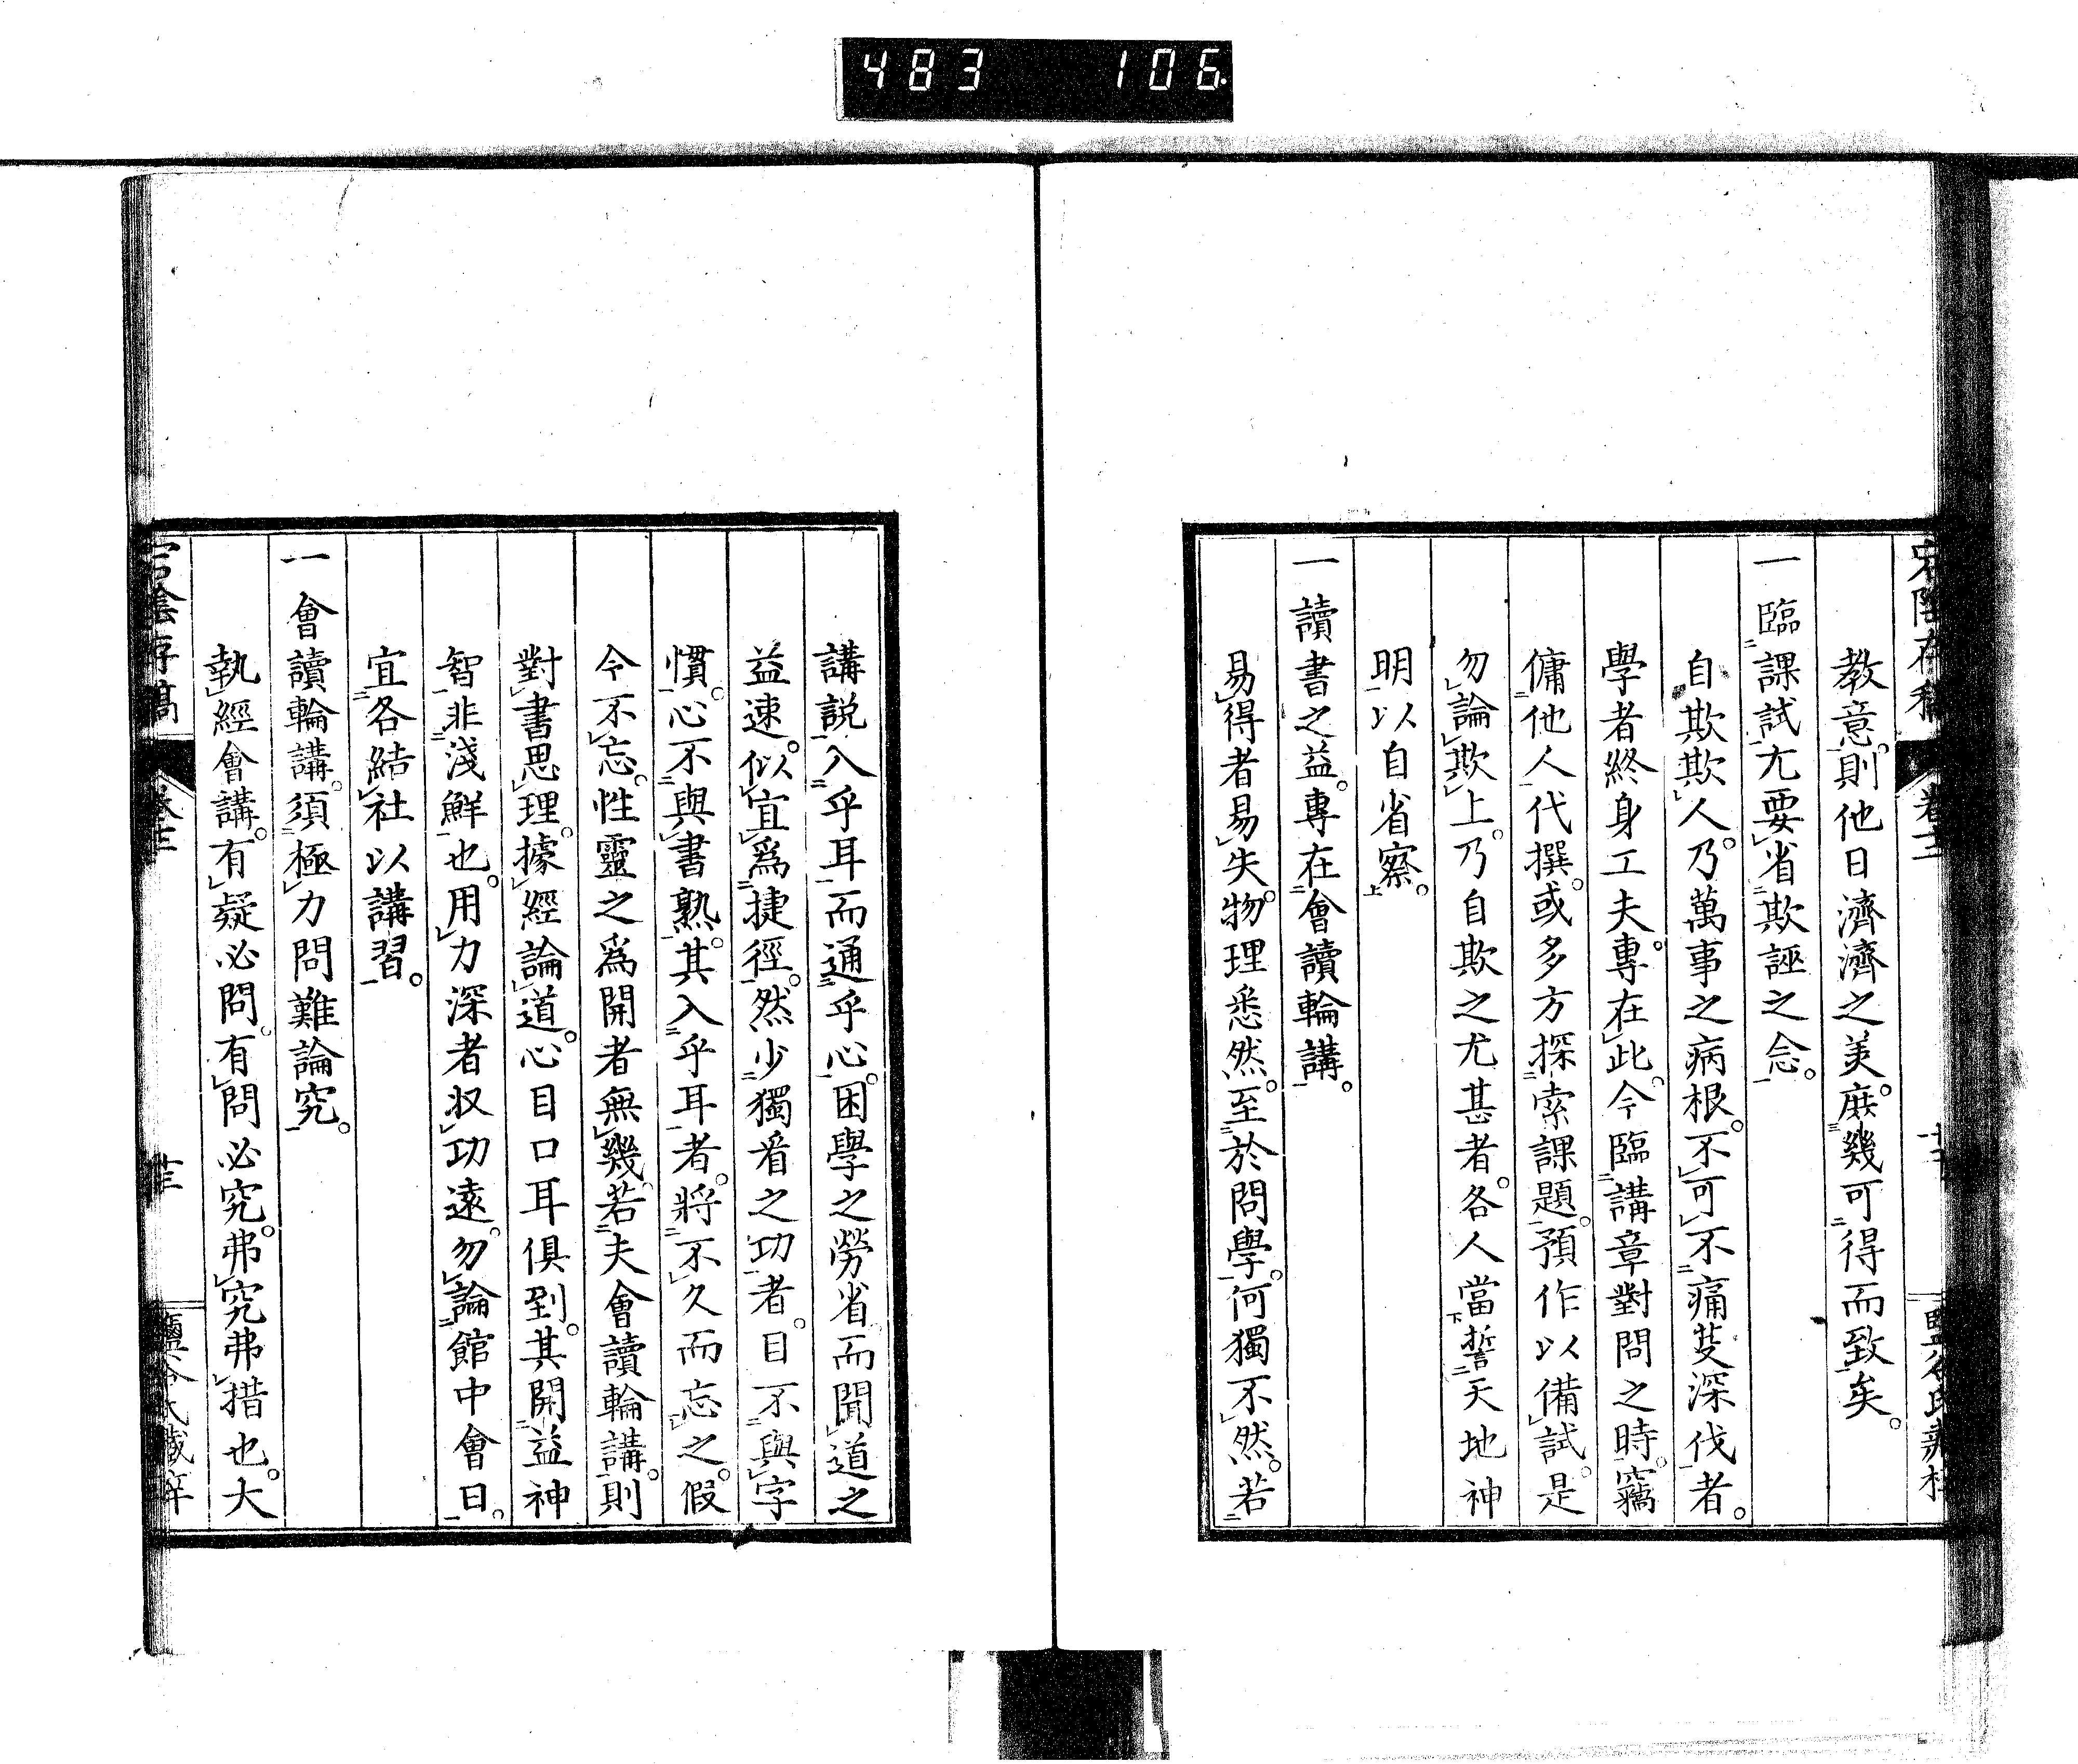 483 106
教意。則他日濟濟之美。庶幾可得而致矣。
一臨課試尤要省欺誣之念。
自欺欺人。乃萬事之病根。不可不痛芟深伐者。
學者終身工夫。專在此。今臨講章對問之時。竊
傭他人代撰。或多方探索課題。預作以備試。是
勿論欺上。乃自欺之尤甚者。各人當誓天地神
明以自省察。
一讀書之益。專在會讀輪講。
易得者易失。物理悉然。至於問學。何獨不然。若
講說入乎耳而通乎心。困學之勞省而聞道之
益速。似宜爲捷徑。然少獨看之功者。目不與字
慣。心不與書熟。其入乎耳者。將不久而忘之。假
令不忘。性靈之爲開者無幾。若夫會讀輪講。則
對書思理。據經論道。心目口耳俱到。其開益神
智非淺鮮也。用力深者收功遠。勿論館中會日。
宜各結社以講習。
一會讀輪講。須極力問難論究。
執經會講。有疑必問。有問必究。弗究弗措也。大
宕陰存稿 卷十三